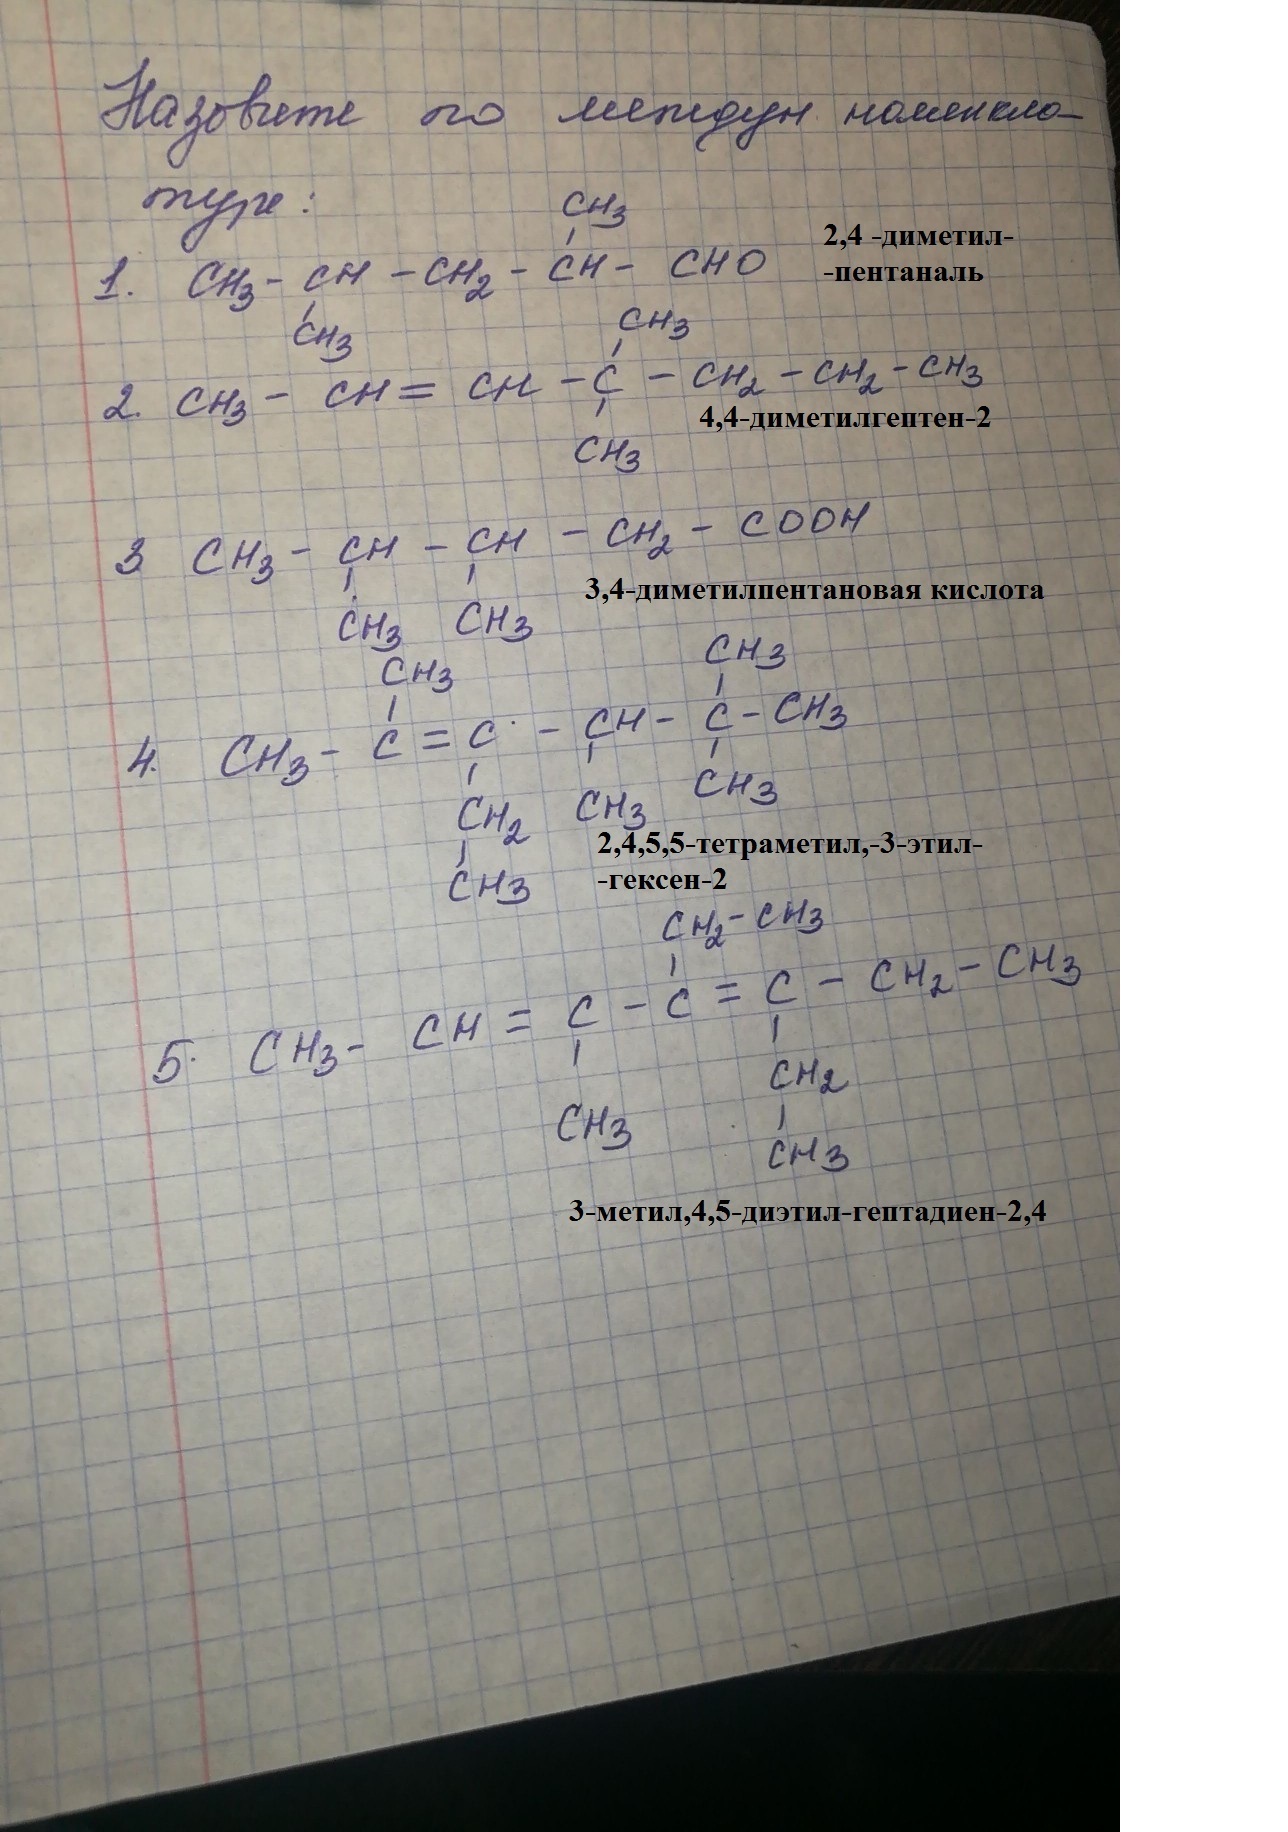 Назовите по междун. номенкла-
туре:
CH3
1. CH3 - CH - CH2 - CH - CHO
2,4 -диметил-
-пентаналь
CH3
CH3
2. CH3 - CH = CH - C - CH2 - CH2 - CH3
4,4-диметилгептен-2
CH3
3 CH3 - CH - CH - CH2 - COOH
3,4-диметилпентановая кислота
CH3 CH3
CH3 CH3
4. CH3 - C = C - CH - C - CH3
CH2 CH3 CH3
CH3
2,4,5,5-тетраметил,-3-этил-
-гексен-2
CH2 - CH3
5. CH3 - CH = C - C = C - CH2 - CH3
CH3 CH2
CH3
3-метил,4,5-диэтил-гептадиен-2,4